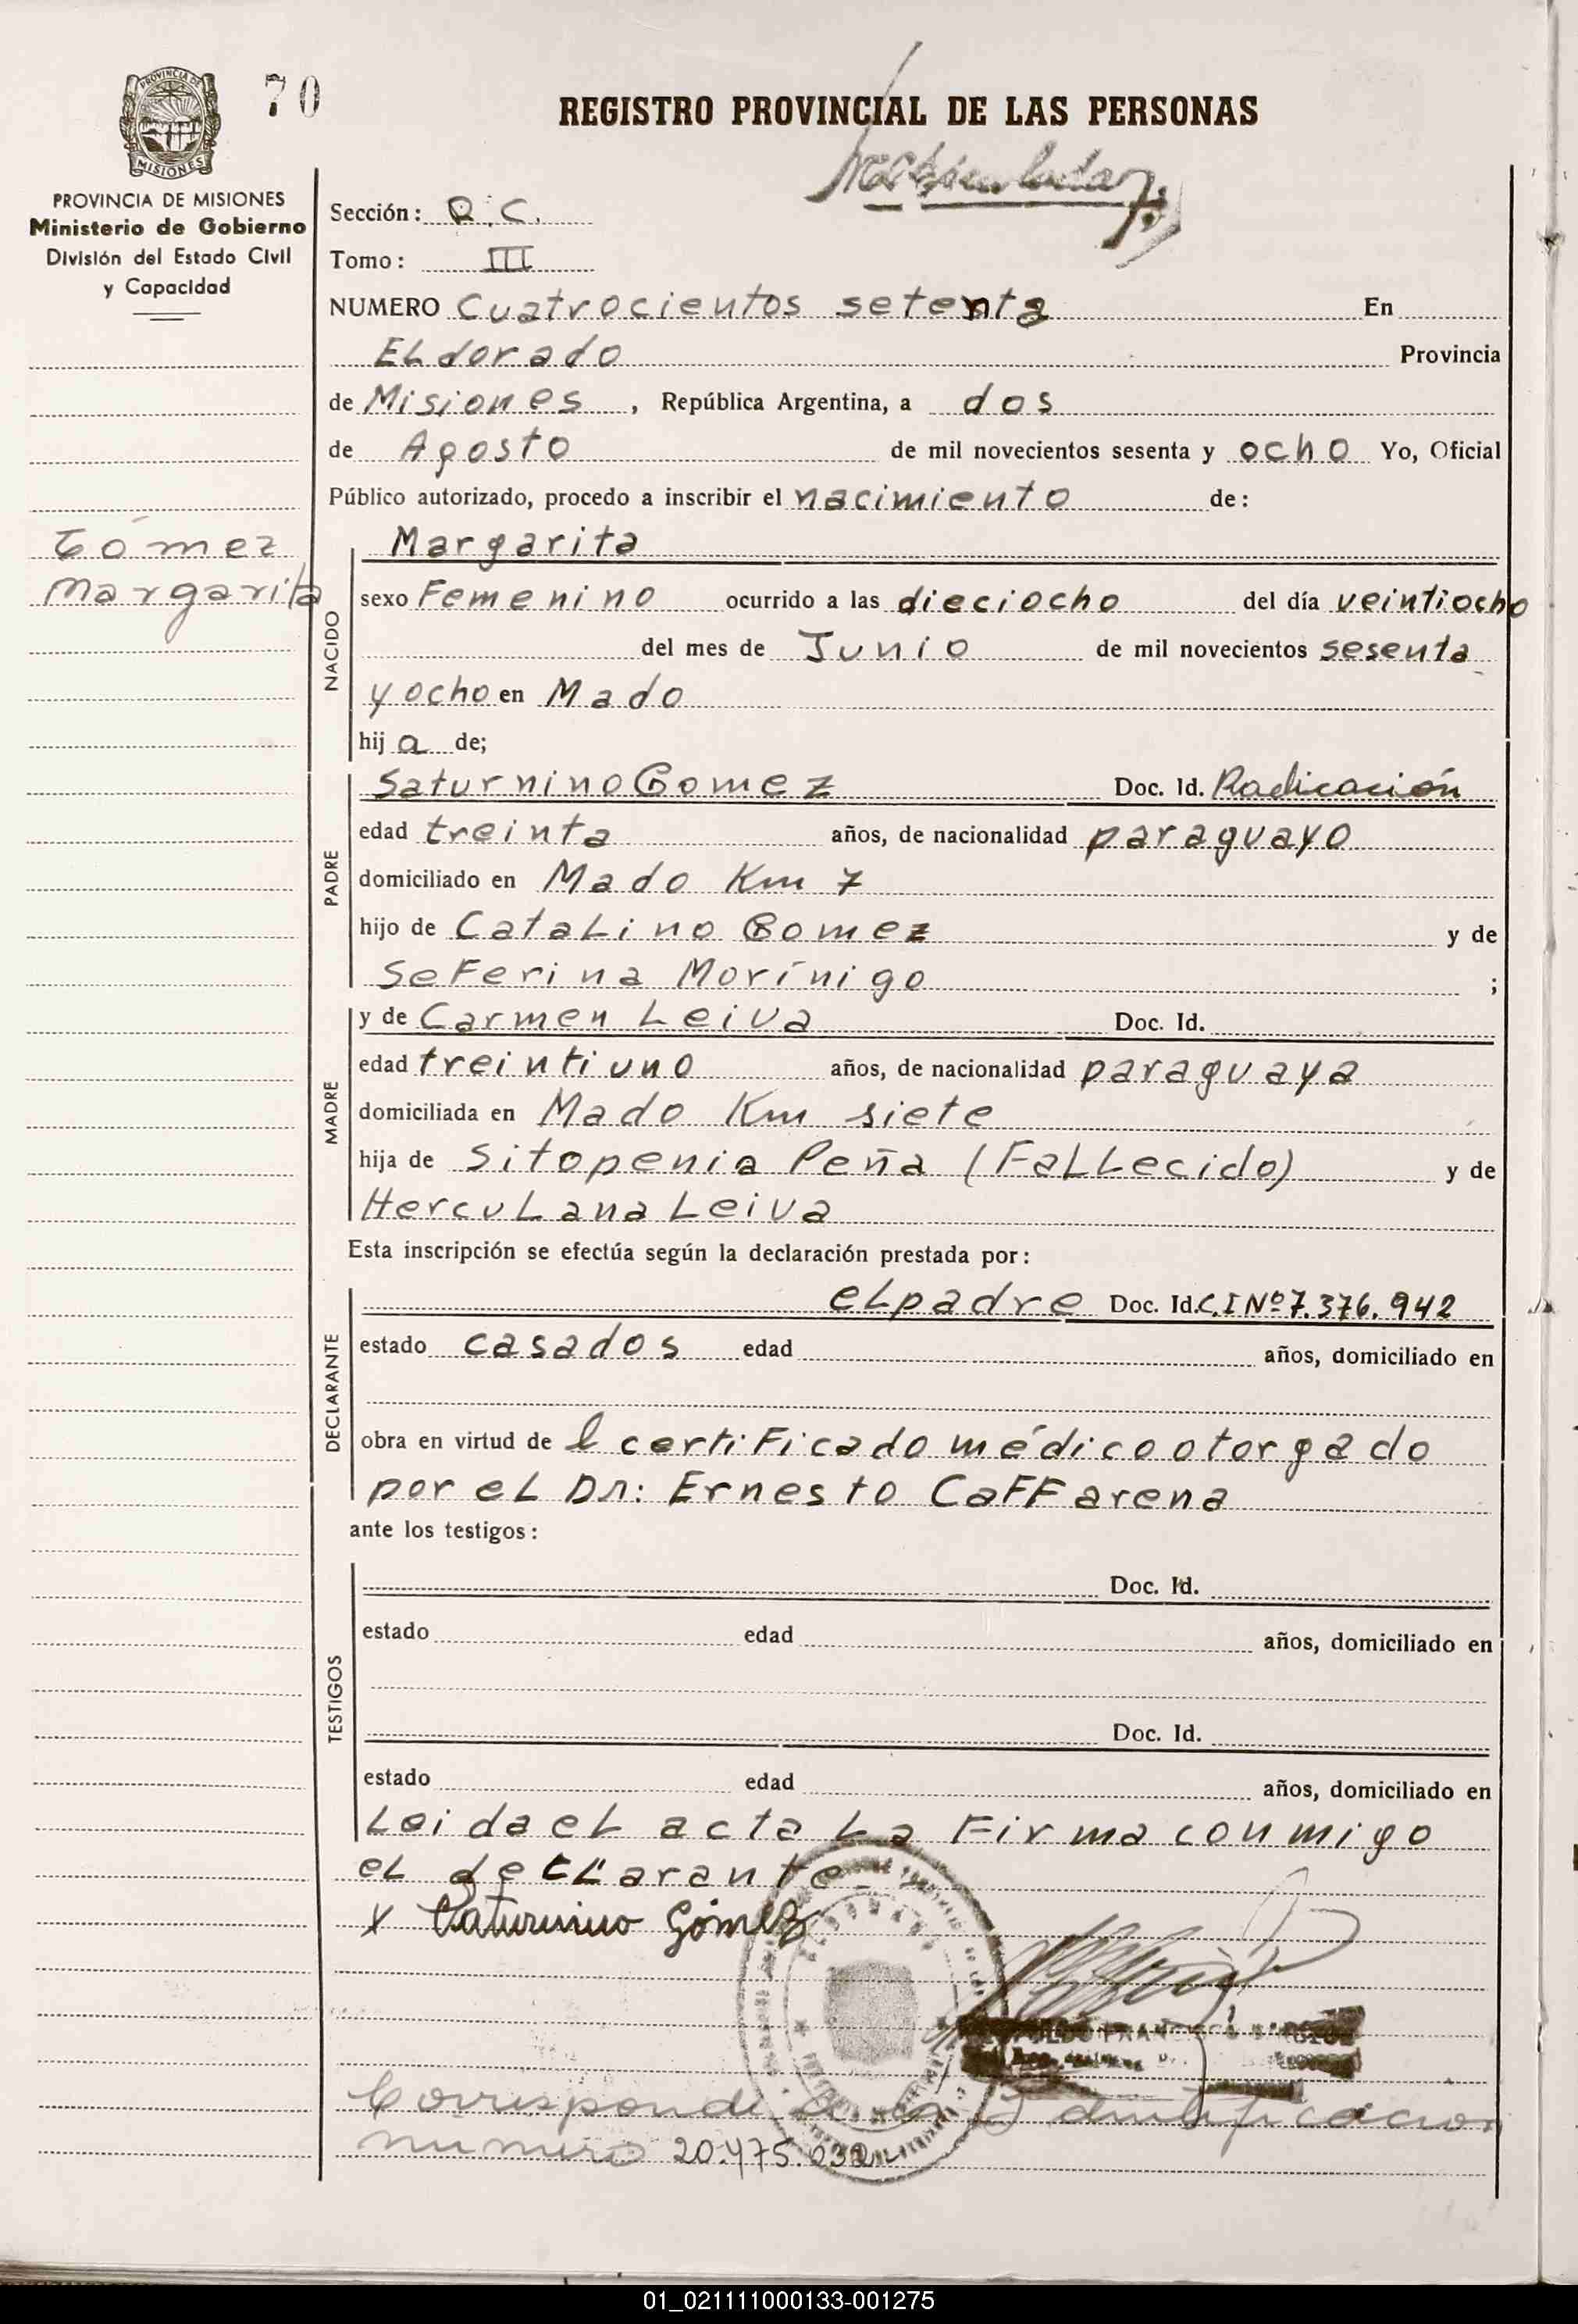 70
REGISTRO PROVINCIAL DE LAS PERSONAS
PROVINCIA DE
MISIONES
PROVINCIA DE MISIONES
Ministerio de Gobierno
División del Estado Civil
y Capacidad
Sección: R.C.
Tomo: III
NUMERO Cuatrocientos setenta En
ELdorado Provincia
de Misiones, República Argentina, a dos
de Agosto de mil novecientos sesenta y ocho Yo, Oficial
Público autorizado, procedo a inscribir el nacimiento de:
Gómez
Margarita
NACIDO
Margarita
sexo Femenino ocurrido a las dieciocho del día veintiocho
del mes de Junio de mil novecientos sesenta
y ocho en Mado
hija de;
PADRE
Saturnino Gomez Doc. Id. Radicación
edad treinta años, de nacionalidad paraguayo
domiciliado en Mado Km 7
hijo de CataLino Gomez y de
SeFerina Morínigo ;
MADRE
y de Carmen Leiva Doc. Id.
edad treintiuno años, de nacionalidad paraguaya
domiciliada en Mado Km siete
hija de Sitopenia Peña (FaLLecido) y de
HercuLana Leiva
Esta inscripción se efectúa según la declaración prestada por:
DECLARANTE
eL padre Doc. Id. C.I Nº 7.376.942
estado casados edad años, domiciliado en
obra en virtud de l certiFicado médico otorgado
por eL Dr: Ernesto CaFFarena
ante los testigos:
TESTIGOS
Doc. Id.
estado edad años, domiciliado en
Doc. Id.
estado edad años, domiciliado en
Leida eL acta La Firma conmigo
eL decLarante
X Saturnino Gómez
FRANCISCO
Corresponde identificacion
numero 20.475.032
01_021111000133-001275